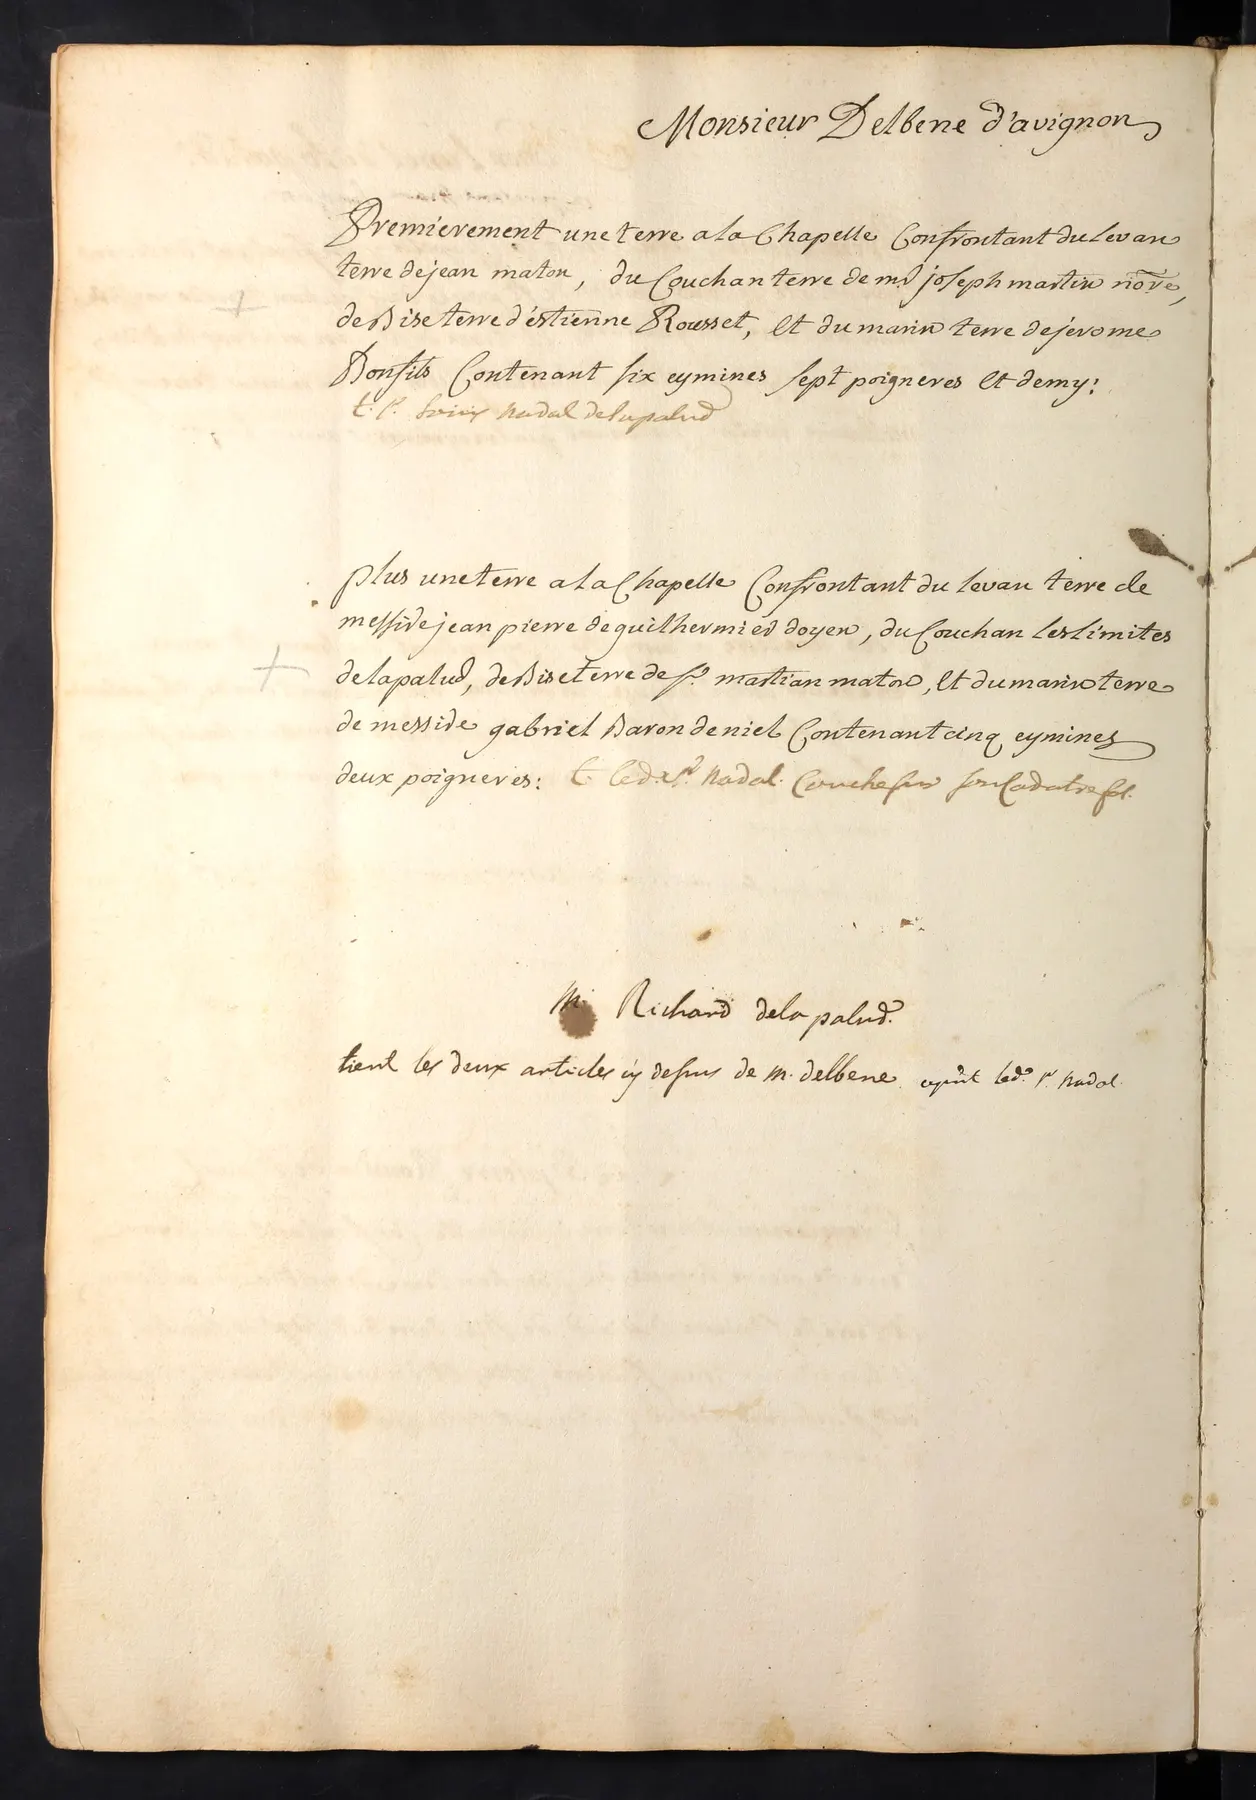 Monsieur Delbene d'avignon
Premierement une terre a la Chapelle Confrontant du levan
terre de jean maton, du Couchan terre de mr joseph martin nore,
de Bise terre d'éstienne Rousset, Et du marin terre de jerome
Bonfils Contenant six eymines sept poigneres Et demy:
t. sr. nadal de lapalud
plus une terre a la Chapelle Confrontant du levan terre de
messire jean pierre de guilhermier doyen, du Couchan les limites
de lapalud, de Bise terre de sr. martian maton, Et du marin terre
de messire gabriel Baron de niel Contenant cinq eymines
deux poigneres: t. led. sr. nadal. Couche sur son Cadatre fol.
Mr. Richard de la palud.
tient les deux articles cy dessus de m. delbene. led. sr nadal.